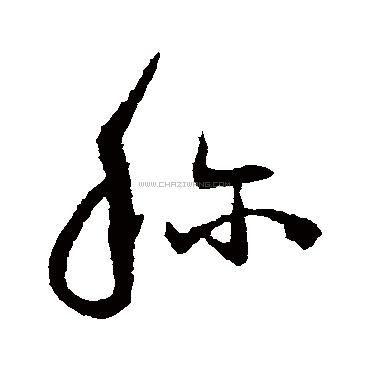 称
WWW.CHAZIWANG.COM